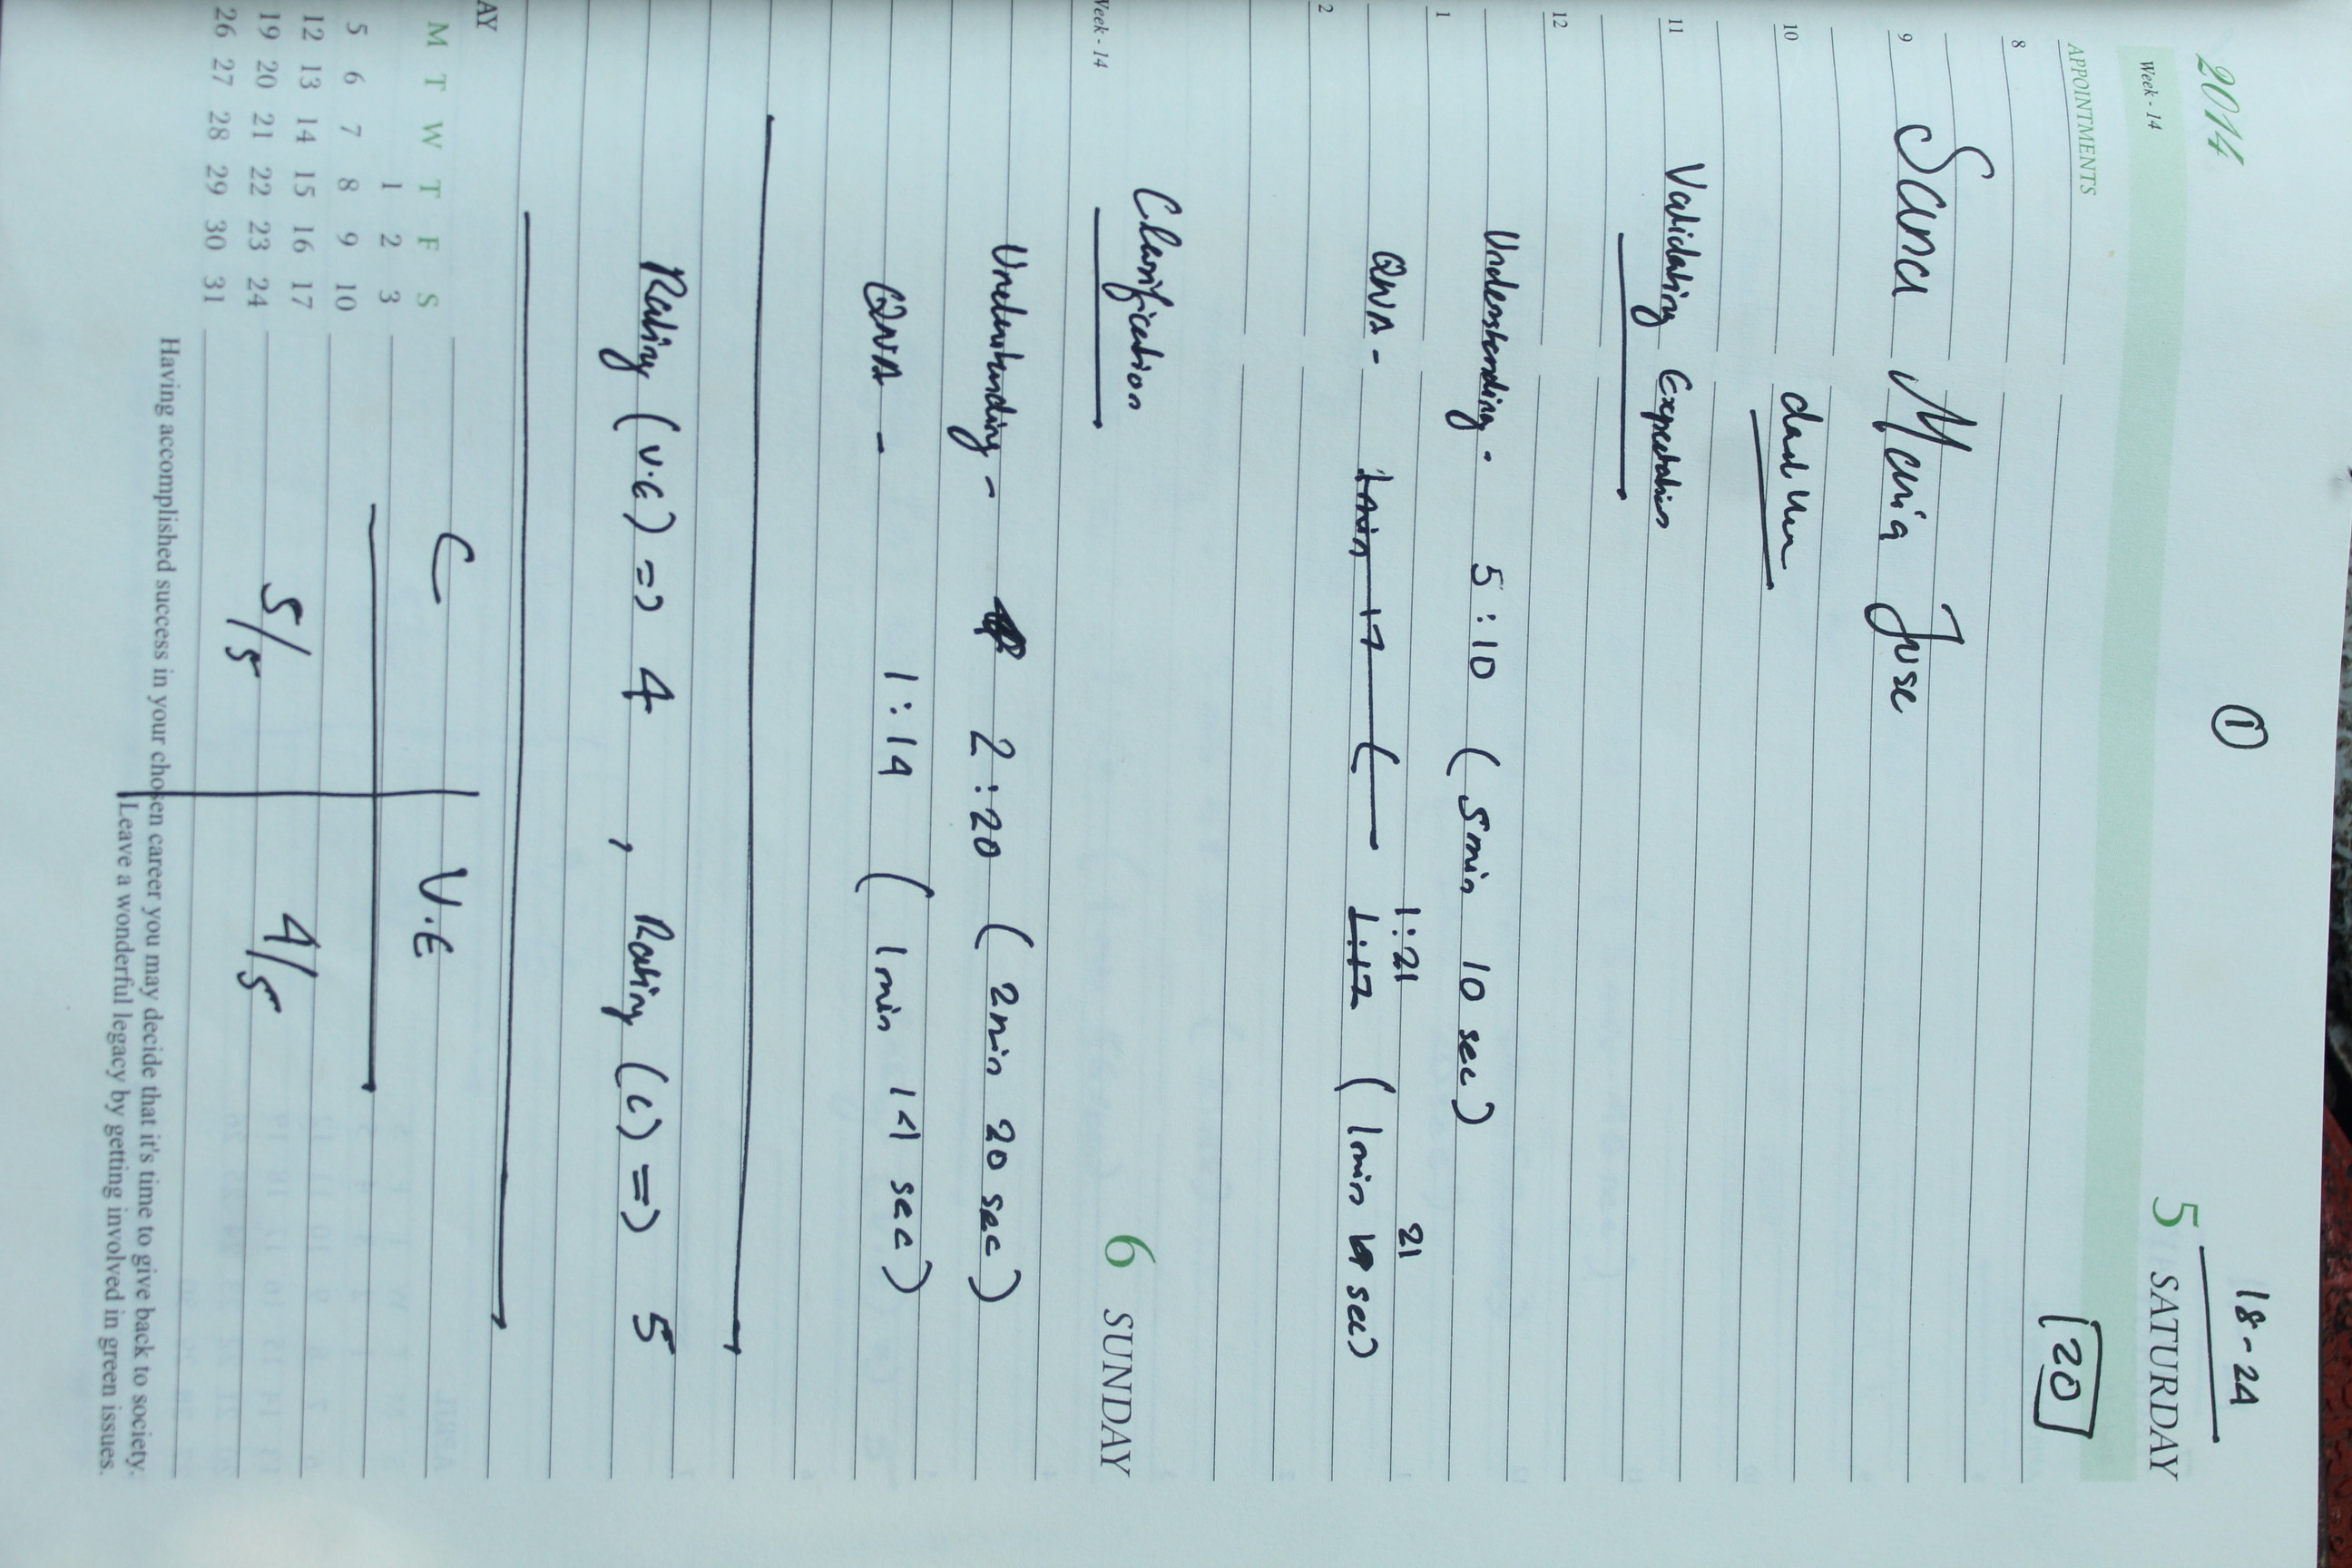 ①
18-24
2014
5 SATURDAY
Week - 14
APPOINTMENTS
20
8
Sana Maria Jose
9
10
11
Validating Expectations
12
Understanding - 5:10 (5min 10 sec)
1
1:21 21
QNA - 1min 17 ( 1:17 (1min sec)
2
Clarification
6 SUNDAY
Week - 14
Understanding - 2:20 (2min 20 sec)
QNA - 1:14 (1min 14 sec)
Rating (V.E) => 4 , Rating (C) => 5
AY
C V.E
M T W T F S
1 2 3
5 6 7 8 9 10
12 13 14 15 16 17
5/5 4/5
19 20 21 22 23 24
26 27 28 29 30 31
Having accomplished success in your chosen career you may decide that it's time to give back to society.
Leave a wonderful legacy by getting involved in green issues.